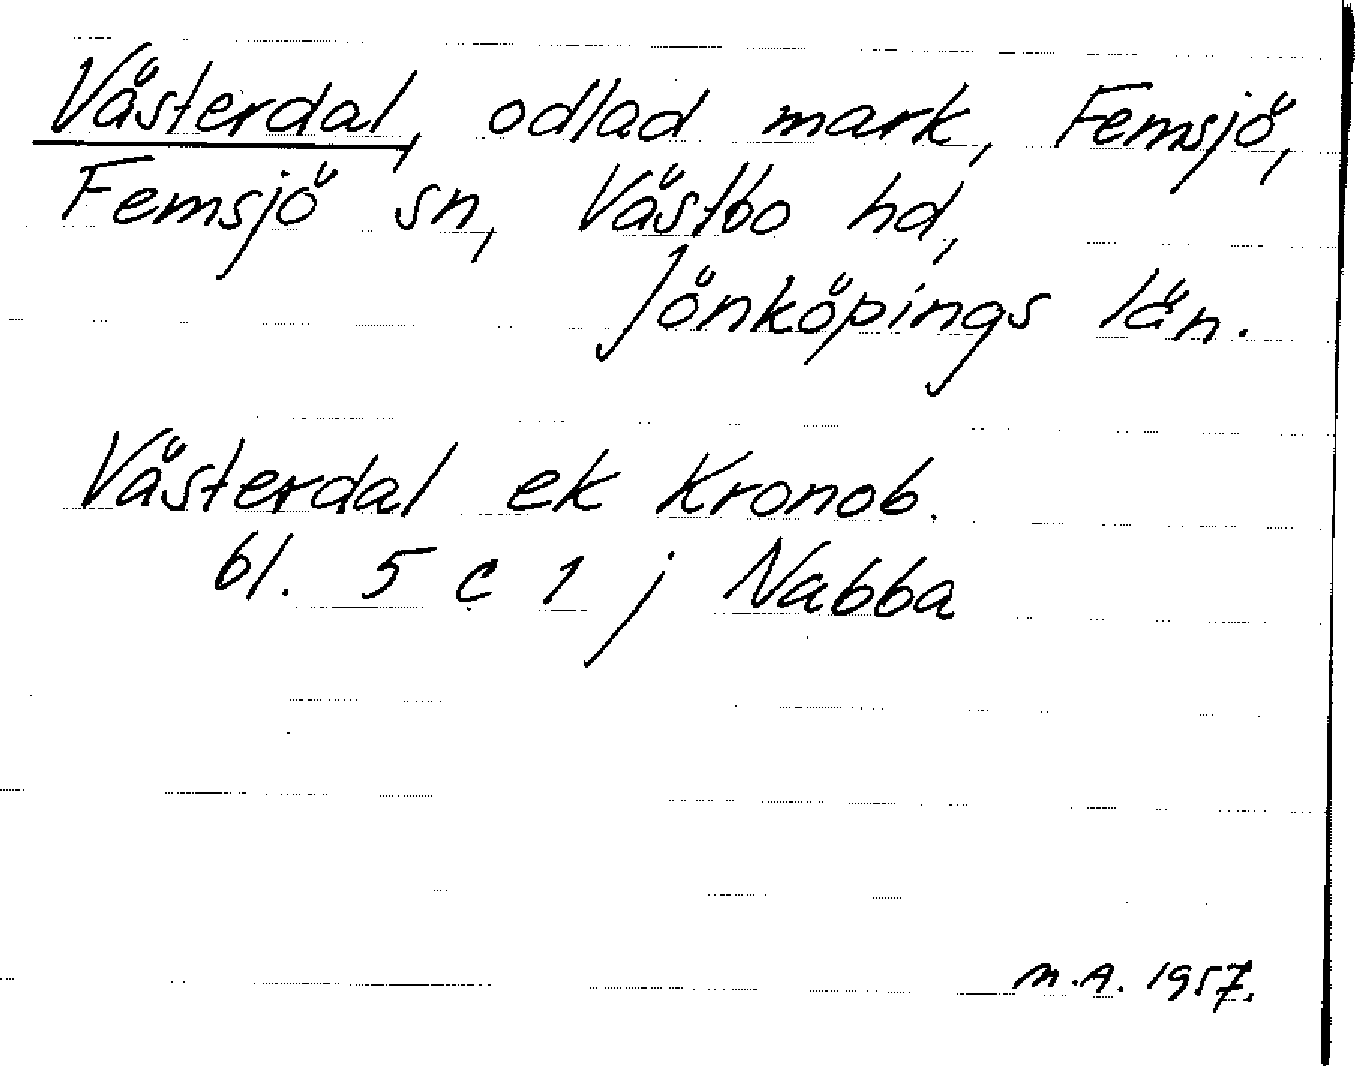 Västerdal, odlad mark, Femsjö,
Femsjö sn, Västbo hd,
Jönköpings län.
Västerdal ek Kronob.
bl. 5 c 1 j Nabba
M.A. 1957.